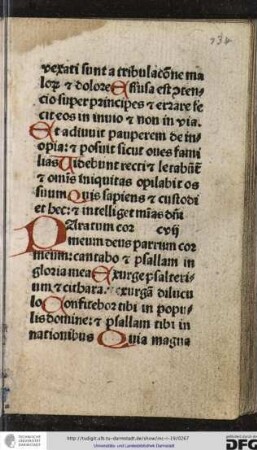 vexati sunt a tribulacõne ma
lorꝝ ⁊ dolore Effusa est ↄ̃ten-
cio super principes ⁊ errare fe
cit eos in inuio ⁊ non in via.
Et adiuuit pauperem de in-
opia: ⁊ posuit sicut oues fami
lias Uidebunt recti ⁊ letabũt̃
⁊ om̃is iniquitas opilabit os
suum Quis sapiens ⁊ custodi
et hec: ⁊ intelliget mĩas dñi
PAratum cor cvij
meum deus paratum cor
meum: cantabo ⁊ psallam in
gloria mea Exurge psalteri-
um ⁊ cithara: exurgã dilucu
lo Confitebor tibi in popu-
lis domine: ⁊ psallam tibi in
nationibus Quia magna
http://tudigit.ulb.tu-darmstadt.de/show/inc-i-19/0267
Universitäts- und Landesbibliothek Darmstadt
TECHNISCHE
UNIVERSITÄT
DARMSTADT
DFG